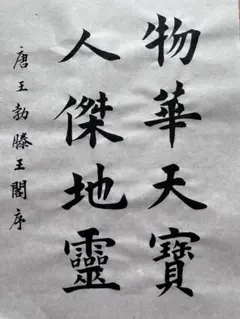 物華天寶
人傑地靈
唐王勃滕王閣序